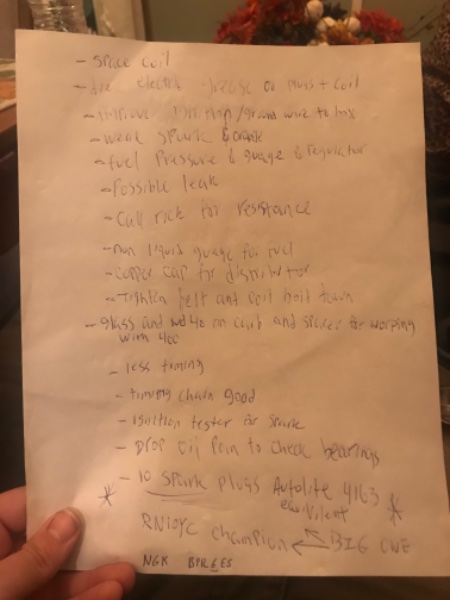 - space coil
- electric grease on plugs + coil
- ground wire to
- weak spark & crank
- fuel pressure & guage & regulator
- Possible leak
- Call rick for resistance
- non liquid guage for fuel
- copper cap for distributor
- Tighten belt and
- glass and wd40 on carb and spacer for warping
with 400
- less timing
- timing chain good
- ignition tester for spark
- Drop oil pan to check bearings
- 10 spark plugs Autolite 4163
equivilent
champion BIG ONE
NGK BPR6ES